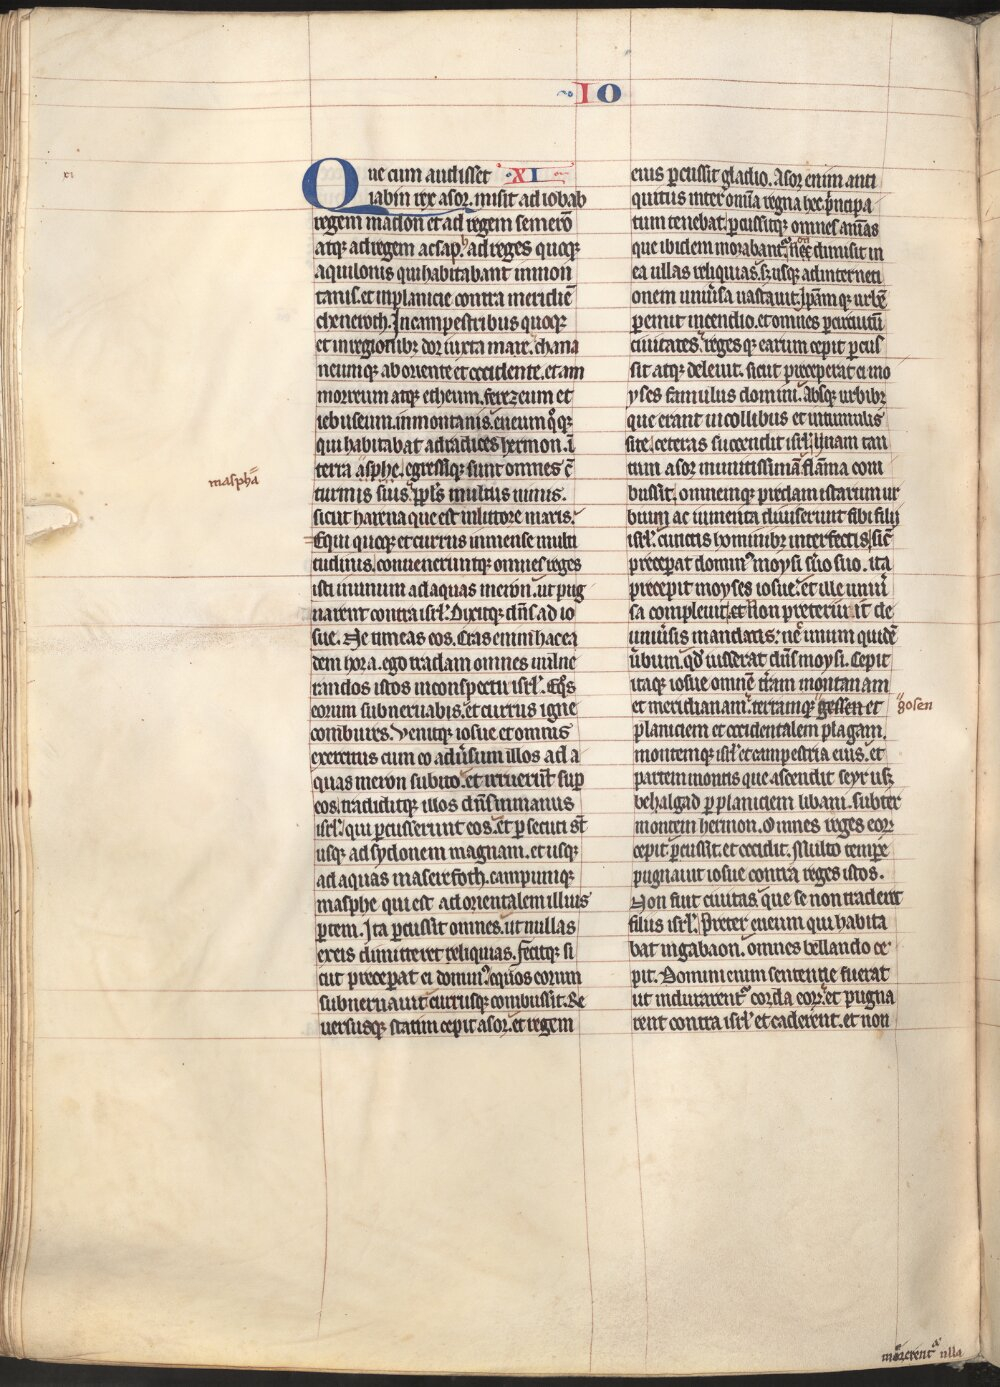 IO
xi
Que cum audisset XI
iabin rex asor. misit ad iobab
regem madon et ad regem semerō
atq; ad regem acsaph. ad reges quoq;
aquilonis qui habitabant in mon
tanis. et in planicie contra meridiē
cheneroth. In campestribus quoq;
et in regionibꝫ dor iuxta mare. chana
neumq; ab oriente et occidente. et am
morreum atq; etheum. ferezeum et
iebuseum. in montanis. eueum qͦq;
qui habitabat ad radices hermon. ī
terra asphe. egressiq; sunt omnes cͫ
turmis suis. ppl̄s multus nimis.
sicut harena que est in littore maris.
Equi quoq; et currus inmense multi
tudinis. conueneruntq; omnes reges
isti in unum ad aquas meron. ut pug
narent contra isrl̄. Dixitq; dn̄s ad io
sue. Ne timeas eos. Cras enim hac ea
dem hora. ego tradam omnes uulne
randos istos in conspectu isrl̄. Eqͦs
eorum subneruabis. et currus igne
combures. Venitq; iosue et omnis
exercitus cum eo aduͥsum illos ad a
quas meron subito. et irruerūt sup
eos. tradiditq; illos dn̄s in manus
isrl̄. qui ꝑcusserunt eos. et ꝑsecuti sт̄
usq; ad sydonem magnam. et usq;
ad aquas maserefoth. campumq;
masphe qui est ad orientalem illius
ꝑtem. Ita ꝑcussit omnes. ut nullas
ex eis dimitteret reliquias. fecitq; si
cut preceꝑat ei dominꝰ. equos eorum
subneruauit currusq; combussit. Re
uersusq; statim cepit asor. et regem
masphā
eius ꝑcussit gladio. Asor enim anti
quitus inter om̄ia regna hec. pͥncipa
tum tenebat. ꝑcussitq; omnes aīas
que ibidem morabantᷣ. non dimisit in
ea ullas reliquias. sꝫ usq; ad interneti
onem uniūsa uastauit. Ipsam q; urbē
ꝑemit incendio. et omnes ꝑ circuitū
ciuitates. reges q; earum cepit ꝑcus
sit atq; deleuit. sicut preceperat ei mo
yses famulus domini. Absq; urbibꝫ
que erant in collibus et in tumulis
site. ceteras succendit isrl̄. Unam tan
tum asor munitissimā flāma com
bussit. omnemq; predam istarum ur
bium ac iumenta diuiserunt sibi filii
isrl̄. cunctis hominibꝫ interfectis. sicͭ
preceꝑat dominꝰ moysi s̄uo suo. ita
precepit moyses iosue. et ille uniū
sa compleuit. et Non preteriit de
uniūsis mandatis. ne unum quidē
ūbum. qd̄ iusserat dn̄s moysi. Cepit
itaq; iosue omnē t̄ram montanam
et meridianam. terramq; gessen et
planiciem et occidentalem plagam.
montemq; isrl̄ et campestria eius. et
partem montis que ascendit seyr usq;
behalgad ꝑ planiciem libani. subter
montem hermon. Omnes reges eorꝫ
cepit ꝑcussit. et occidit. Multo tempe
pugnauit iosue contra reges istos.
Non fuit ciuitas que se non traderet
filiis isrl̄. Preter eueum qui habita
bat in gabaon. omnes bellando ce
pit. Domini enim sententie fuerat
ut indurarentᷣ corda eorꝫ. et pugna
rent contra isrl̄ et caderent. et non
gosen